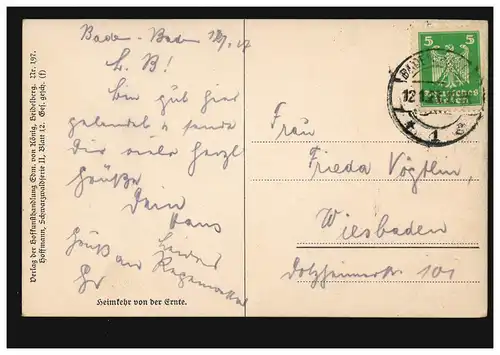 Verlag der Hofkunsthandlung Edm. von König, Heidelberg. Nr. 197.
Hoffmann, Schwarzwaldserie II, Blatt 12. Ges. gesch. (f)
Baden-Baden
L. B!
Bin gut hier
gelandet & sende
Dir viele herzl
Grüße
Dein
Hans
Gruß an
Leider
Regenwetter
Heimkehr von der Ernte.
5 5
Deutsches
Reich
BADEN
12
* 1
Frau
Frieda Vögtlin,
Wiesbaden
Dotzheimerstr 101